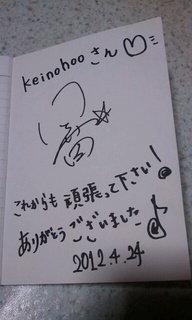 keinohooさん♡
これからも頑張って下さい!
ありがとうございました♪
2012.4.24